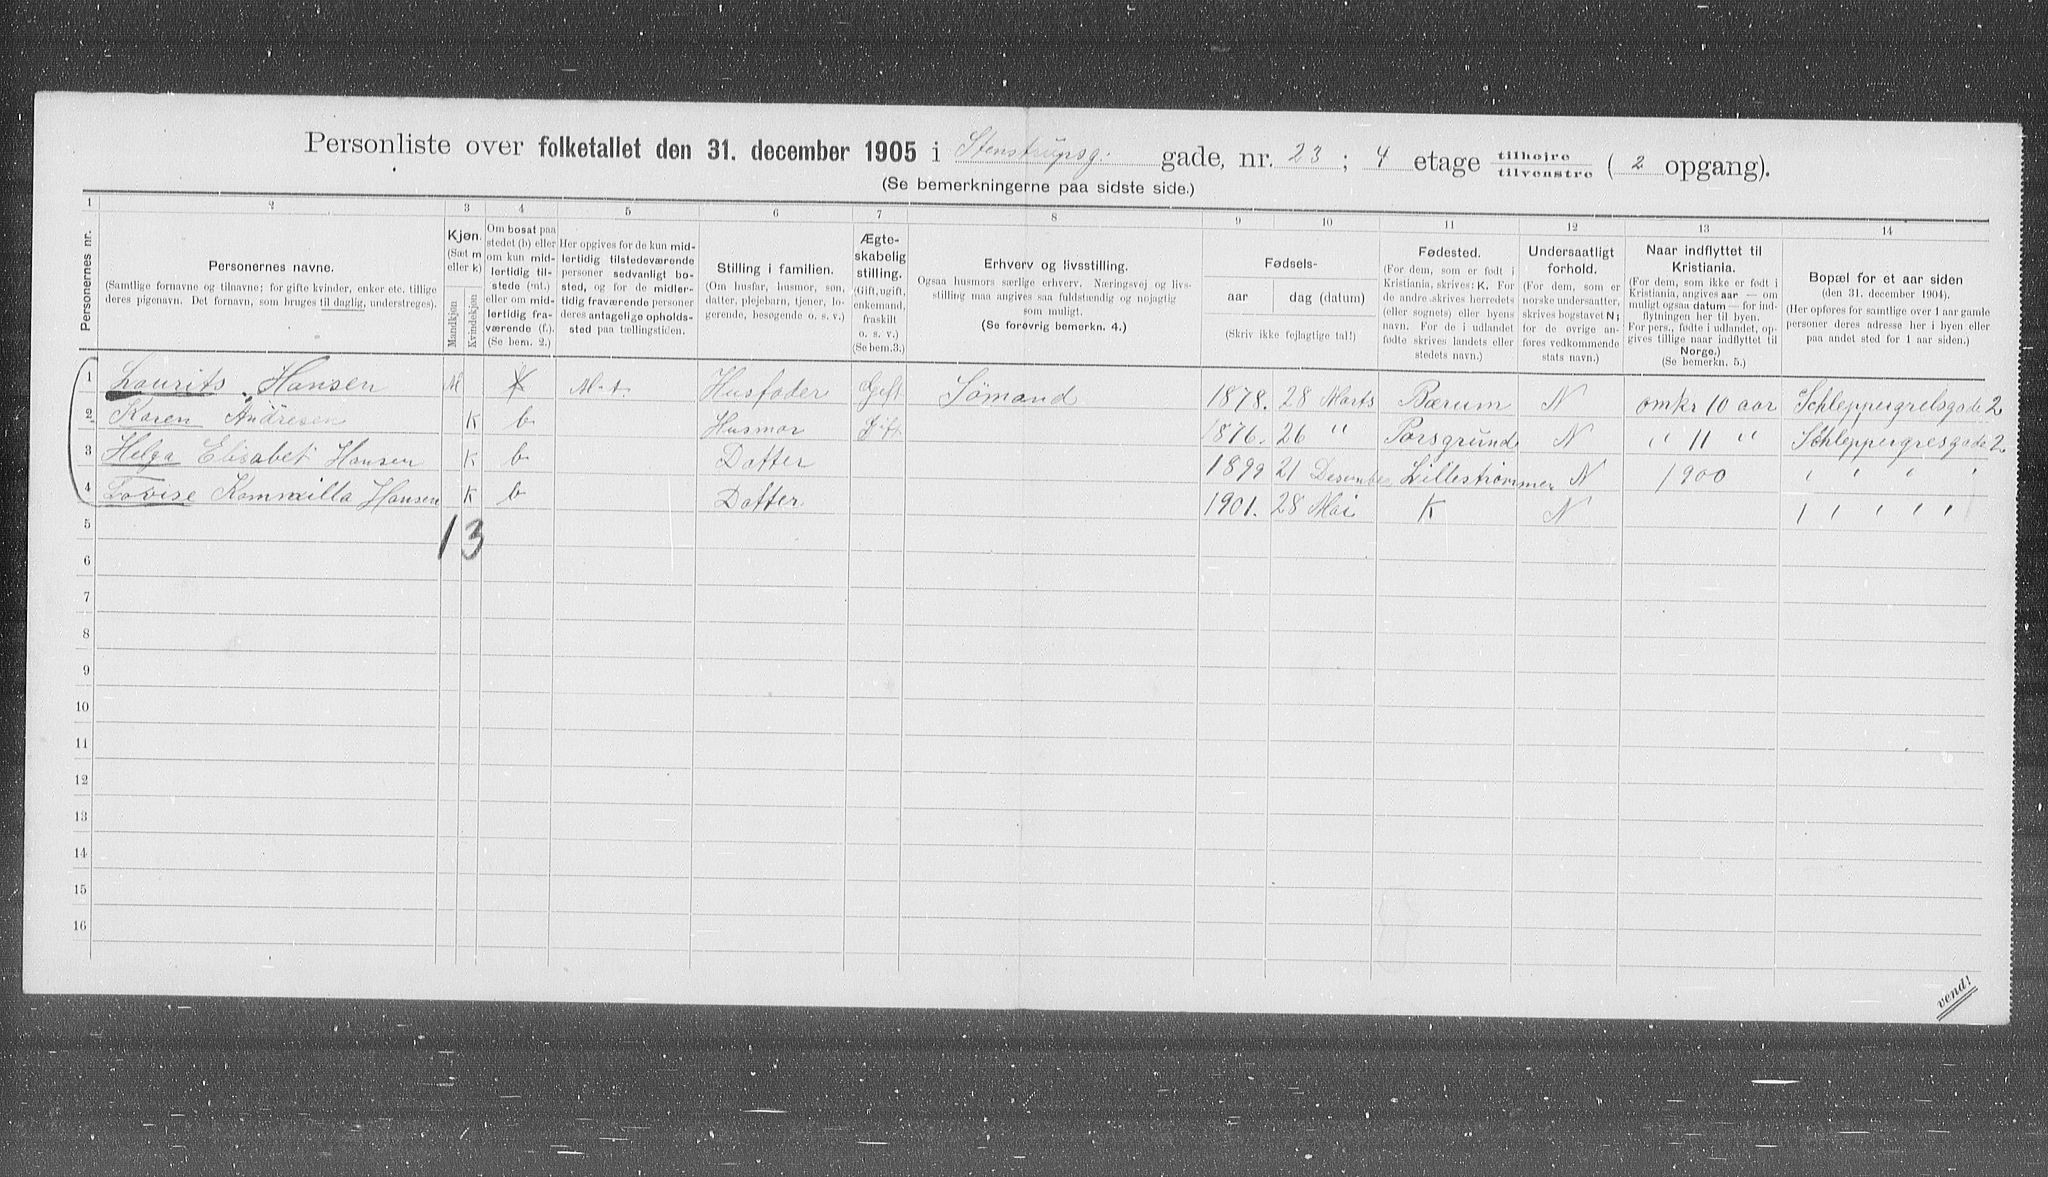 Personliste over folketallet den 31. december 1905 i Stenstrupsg. gade, nr. 23 ; 4 etage tilhøjre / tilvenstre ( 2 opgang).
(Se bemerkningerne paa sidste side.)
1 2 3 4 5 6 7 8 9 10 11 12 13 14
Personernes nr.
Personernes navne.
(Samtlige fornavne og tilnavne; for gifte kvinder, enker etc. tillige
deres pigenavn. Det fornavn, som bruges til daglig, understreges).
Kjøn.
(Sæt m
eller k)
Mandkjøn
Kvindekjøn
Om bosat paa
stedet (b) eller
om kun mid-
lertidig til-
stede (mt.)
eller om mid-
lertidig fra-
værende (f.).
(Se bem. 2.)
Her opgives for de kun mid-
lertidig tilstedeværende
personer sedvanligt bo-
sted, og for de midler-
tidig fraværende personer
deres antagelige opholds-
sted paa tællingstiden.
Stilling i familien.
(Om husfar, husmor, søn,
datter, plejebarn, tjener, lo-
gerende, besøgende o. s. v.)
Ægte-
skabelig
stilling.
(Gift, ugift,
enkemand,
fraskilt
o. s. v.)
(Se bem.3.)
Erhverv og livsstilling.
Ogsaa husmors særlige erhverv. Næringsvej og livs-
stilling maa angives saa fuldstændig og nøjagtig
som muligt.
(Se forøvrig bemerkn. 4.)
Fødsels-
aar dag (datum)
(Skriv ikke fejlagtige tal!)
Fødested.
(For dem, som er født i
Kristiania, skrives: K. For
de andre skrives herredets
(eller sognets) eller byens
navn. For de i udlandet
fødte skrives landets eller
stedets navn.)
Undersaatligt
forhold.
(For dem, som er
norske undersaatter,
skrives bogstavet N;
for de øvrige an-
føres vedkommende
stats navn.)
Naar indflyttet til
Kristiania.
(For dem, som ikke er født i
Kristiania, angives aar — om
muligt ogsaa datum — for ind-
flytningen her til byen.
For pers., fødte i udlandet, op-
gives tillige naar indflyttet til
Norge.)
(Se bemerkn. 5.)
Bopæl for et aar siden
(den 31. december 1904).
(Her opføres for samtlige over 1 aar gamle
personer deres adresse her i byen eller
paa andet sted for 1 aar siden.)
1 Laurits Hansen M M.t. Husfader Gift Sömand 1878. 28 Marts Bærum N omkr 10 aar Schleppergrelsgade 2
2 Karen Andresen K b Husmor Gift 1876. 26 " Porsgrund N " 11 " Schleppergresgade 2
3 Helga Elisabet Hansen K b Datter 1899 21 Desember Lillestrømmen N 1900 " " " "
4 Lovise Kammilla Hansen K b Datter 1901. 28 Mai K N " " " " "
5 13
6
7
8
9
10
11
12
13
14
15
16
vend!